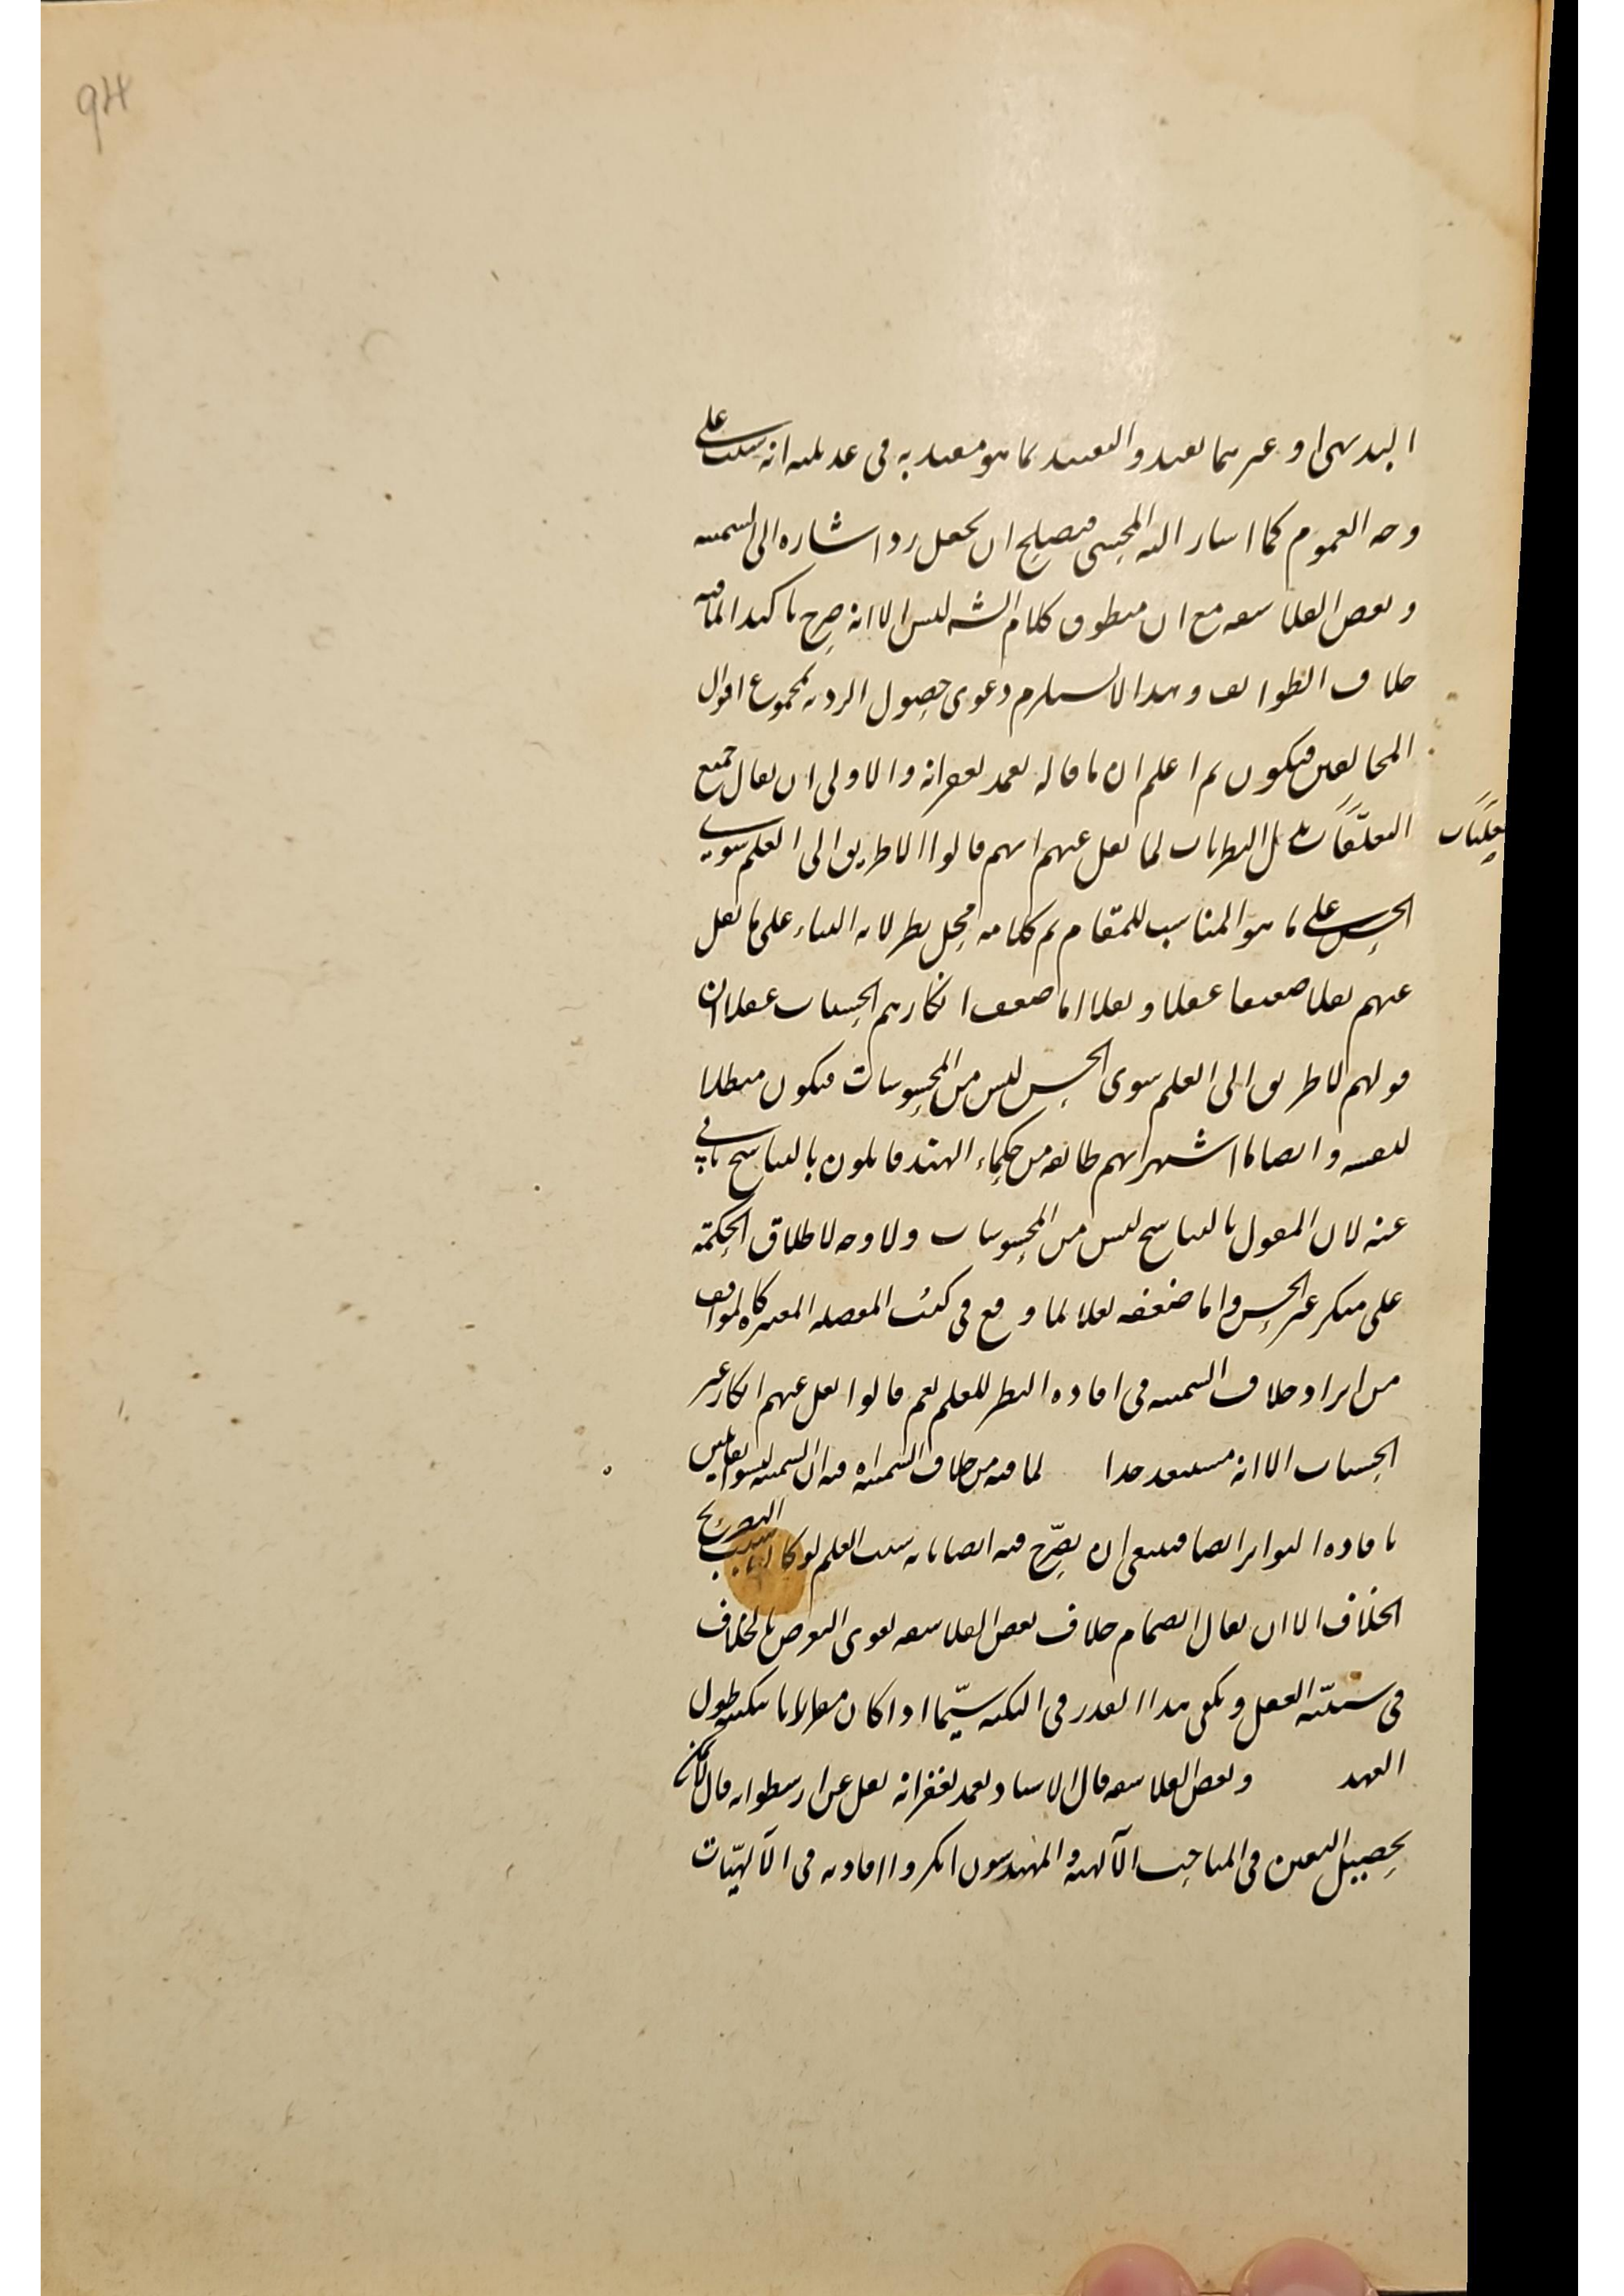 94
البديهى او غيرهما تقييد والتقييد بما هو مقيد به فى عديله انه سبب على
وجه العموم كما اشار اليه المحشى فيصلح ان يجعل ردا اشارة الى السمنية
وبعض الفلاسفة مع ان منطوق كلام الشه ليس الا انه صرح تاكيدا لما فيه
خلاف الطوائف وهذا لا يستلزم دعوى حصول الرد به بمجموع اقوال
المخالفين فيكون ثم اعلم ان ما قاله تعمد بغفرانه والاولى ان يقال جميع
العقليات بدل النظريات لما نقل عنهم انهم قالوا لا طريق الى العلم سوى
الحس على ما هو المناسب للمقام ثم كلامه محل نظر لانه البناء على ما نقل
عنهم نقلا ضعيفا عقلا ونقلا اما ضعف انكارهم الحسيات عقلا لان
قولهم لا طريق الى العلم سوى الحس ليس من المحسوسات فيكون مبطلا
لنفسه وايضا ما اشتهر انهم طائفة من حكماء الهند قائلون بالتناسخ يابى
عنه لان القول بالتناسخ ليس من المحسوسات ولا وجه لاطلاق الحكمة
على منكر غير الحس واما ضعفه نقلا لما وقع فى كتب المفصلة المعتبرة كالمواقف
من ايراد خلاف السمنية فى افادة النظر للعلم نعم قالوا نقل عنهم انكار غير
الحسيات الا انه مستبعد جدا لما فيه من خلاف السمنية فيه ان السمنية ليسوا بقائلين
بافادة التواتر ايضا فينبغى ان يصرح فيه ايضا بانه سبب العلم لو كان سبب التصريح
الخلاف الا ان يقال انضمام خلاف بعض الفلاسفة يقوى التعرض بالخلاف
فى سببية العقل ويكفى هذا القدر فى النكتة سيّما اذا كان بنكتة طول
العهد وبعض الفلاسفة قال الاستاد تعمد بغفرانه نقل عن ارسطو انه قال لا يمكن
تحصيل اليقين فى المباحث الآلهية والمهندسون انكروا افادته فى الآلهيّات